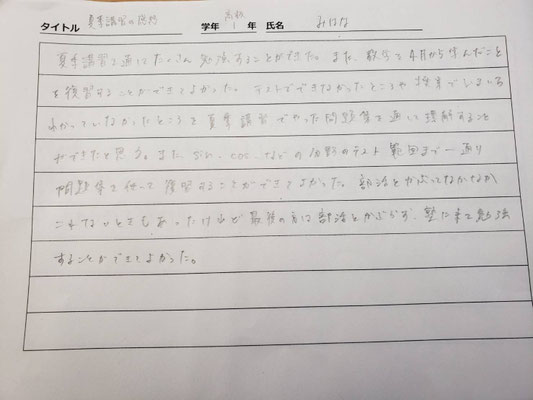 タイトル 夏季講習の感想 学年 高校1年 氏名 みはな
夏季講習を通してたくさん勉強することができた。また、数学で4月から学んだこと
を復習することができてよかった。テストでできなかったところや授業で
わかっていなかったところを夏季講習でやった問題集を通して理解すること
ができたと思う。また、sin、cos、などの分野のテスト範囲まで一通り
問題集を使って復習することができてよかった。部活とかぶってなかなか
これないときもあったけれど最後の方は部活とかぶらず、塾に来て勉強
することができてよかった。